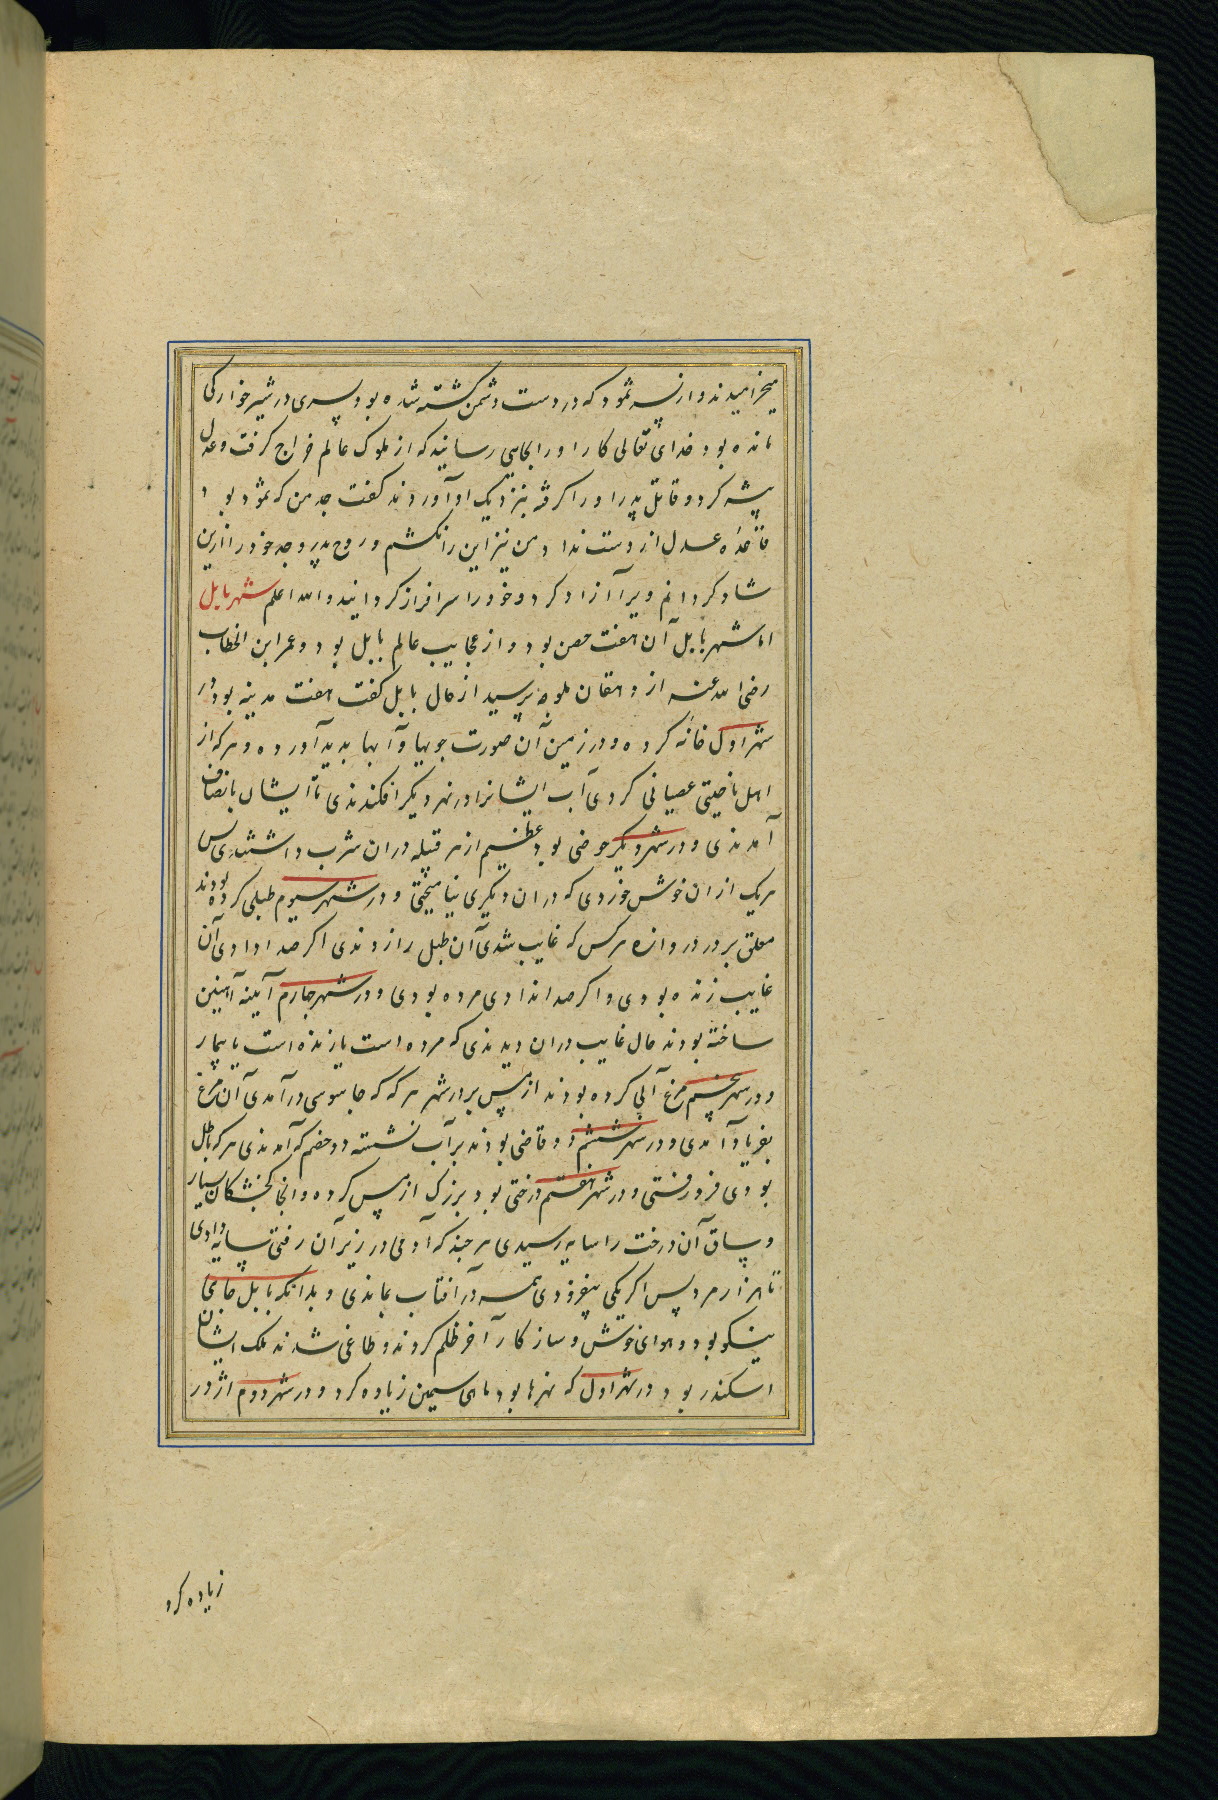 میخرامیدند و از پسر ثمود که در دست دشمن کشته شده بود پسری در شیرخوارکی
مانده بود خدای تعالی کار او را بجایی رسانید که از ملوک عالم خراج کرفت و عدل
پیشه کرد و قاتل پدر او را کرفته بنزدیک او آوردند کفت جد من که ثمود بود
قاعده عدل از دست نداد من نیز این را نکشم و روح پدر و جد خود را ازین
شاد کردانم ویرا آزاد کرد و خود را سرافراز کردانید والله اعلم شهر بابل
اما شهر بابل آن هفت حصن بود و از عجایب عالم بابل بود و عمر ابن الخطاب
رضی الله عنه از دهقان فلوجه پرسید از حال بابل کفت هفت مدینه بود در
شهر اول خانه کرده و در زمین آن صورت جویها و آبها بدید آورده و هر که از
اهل ناحیتی عصیانی کردی آب ایشانرا در نهر دیکر افکندندی تا ایشان بانصاف
آمدندی و در شهر دیکر حوضی بود عظیم از هر قبیله دران شرب داشتندی پس
هریک ازان خوش خوردی که دران دیکری نیامیختی و در شهر سیوم طبلی کرده بودند
معلق بر در دروازه هر کس که غایب شدی آن طبل را زدندی اکر صدا دادی آن
غایب زنده بودی و اکر صدا ندادی مرده بودی و در شهر جهارم آیینه آهنین
ساخته بودند حال غایب دران دیدندی که مرده است یا زنده است یا بیمار
و در شهر پنجم مرغ آبی کرده بودند از مس بر در شهر هر که که جاسوسی درآمدی آن مرغ
بفریاد آمدی و در شهر ششم دو قاضی بودند بر آب نشسته دو خصم که آمدندی هر که باطل
بودی فرو رفتی و در شهر هفتم درختی بود بزرک از مس کرده و انجا کنجشکان بسیار
و بساق آن درخت را سایه رسیدی هر جند که آدمی در زیر آن رفتی سایه دادی
تا هزار مرد پس اکر یکی بیفزودی همه در آفتاب بماندی و بدانکه بابل جامجا
نیکو بود و هوای خوش و سازکار آخر ظلم کردند و طاغی شدند ملک ایشان
اسکندر بود در شهر اول که نهرها بود ماهی سیمین زیاده کرد و در شهر دوم اژدر
زیاده کرد